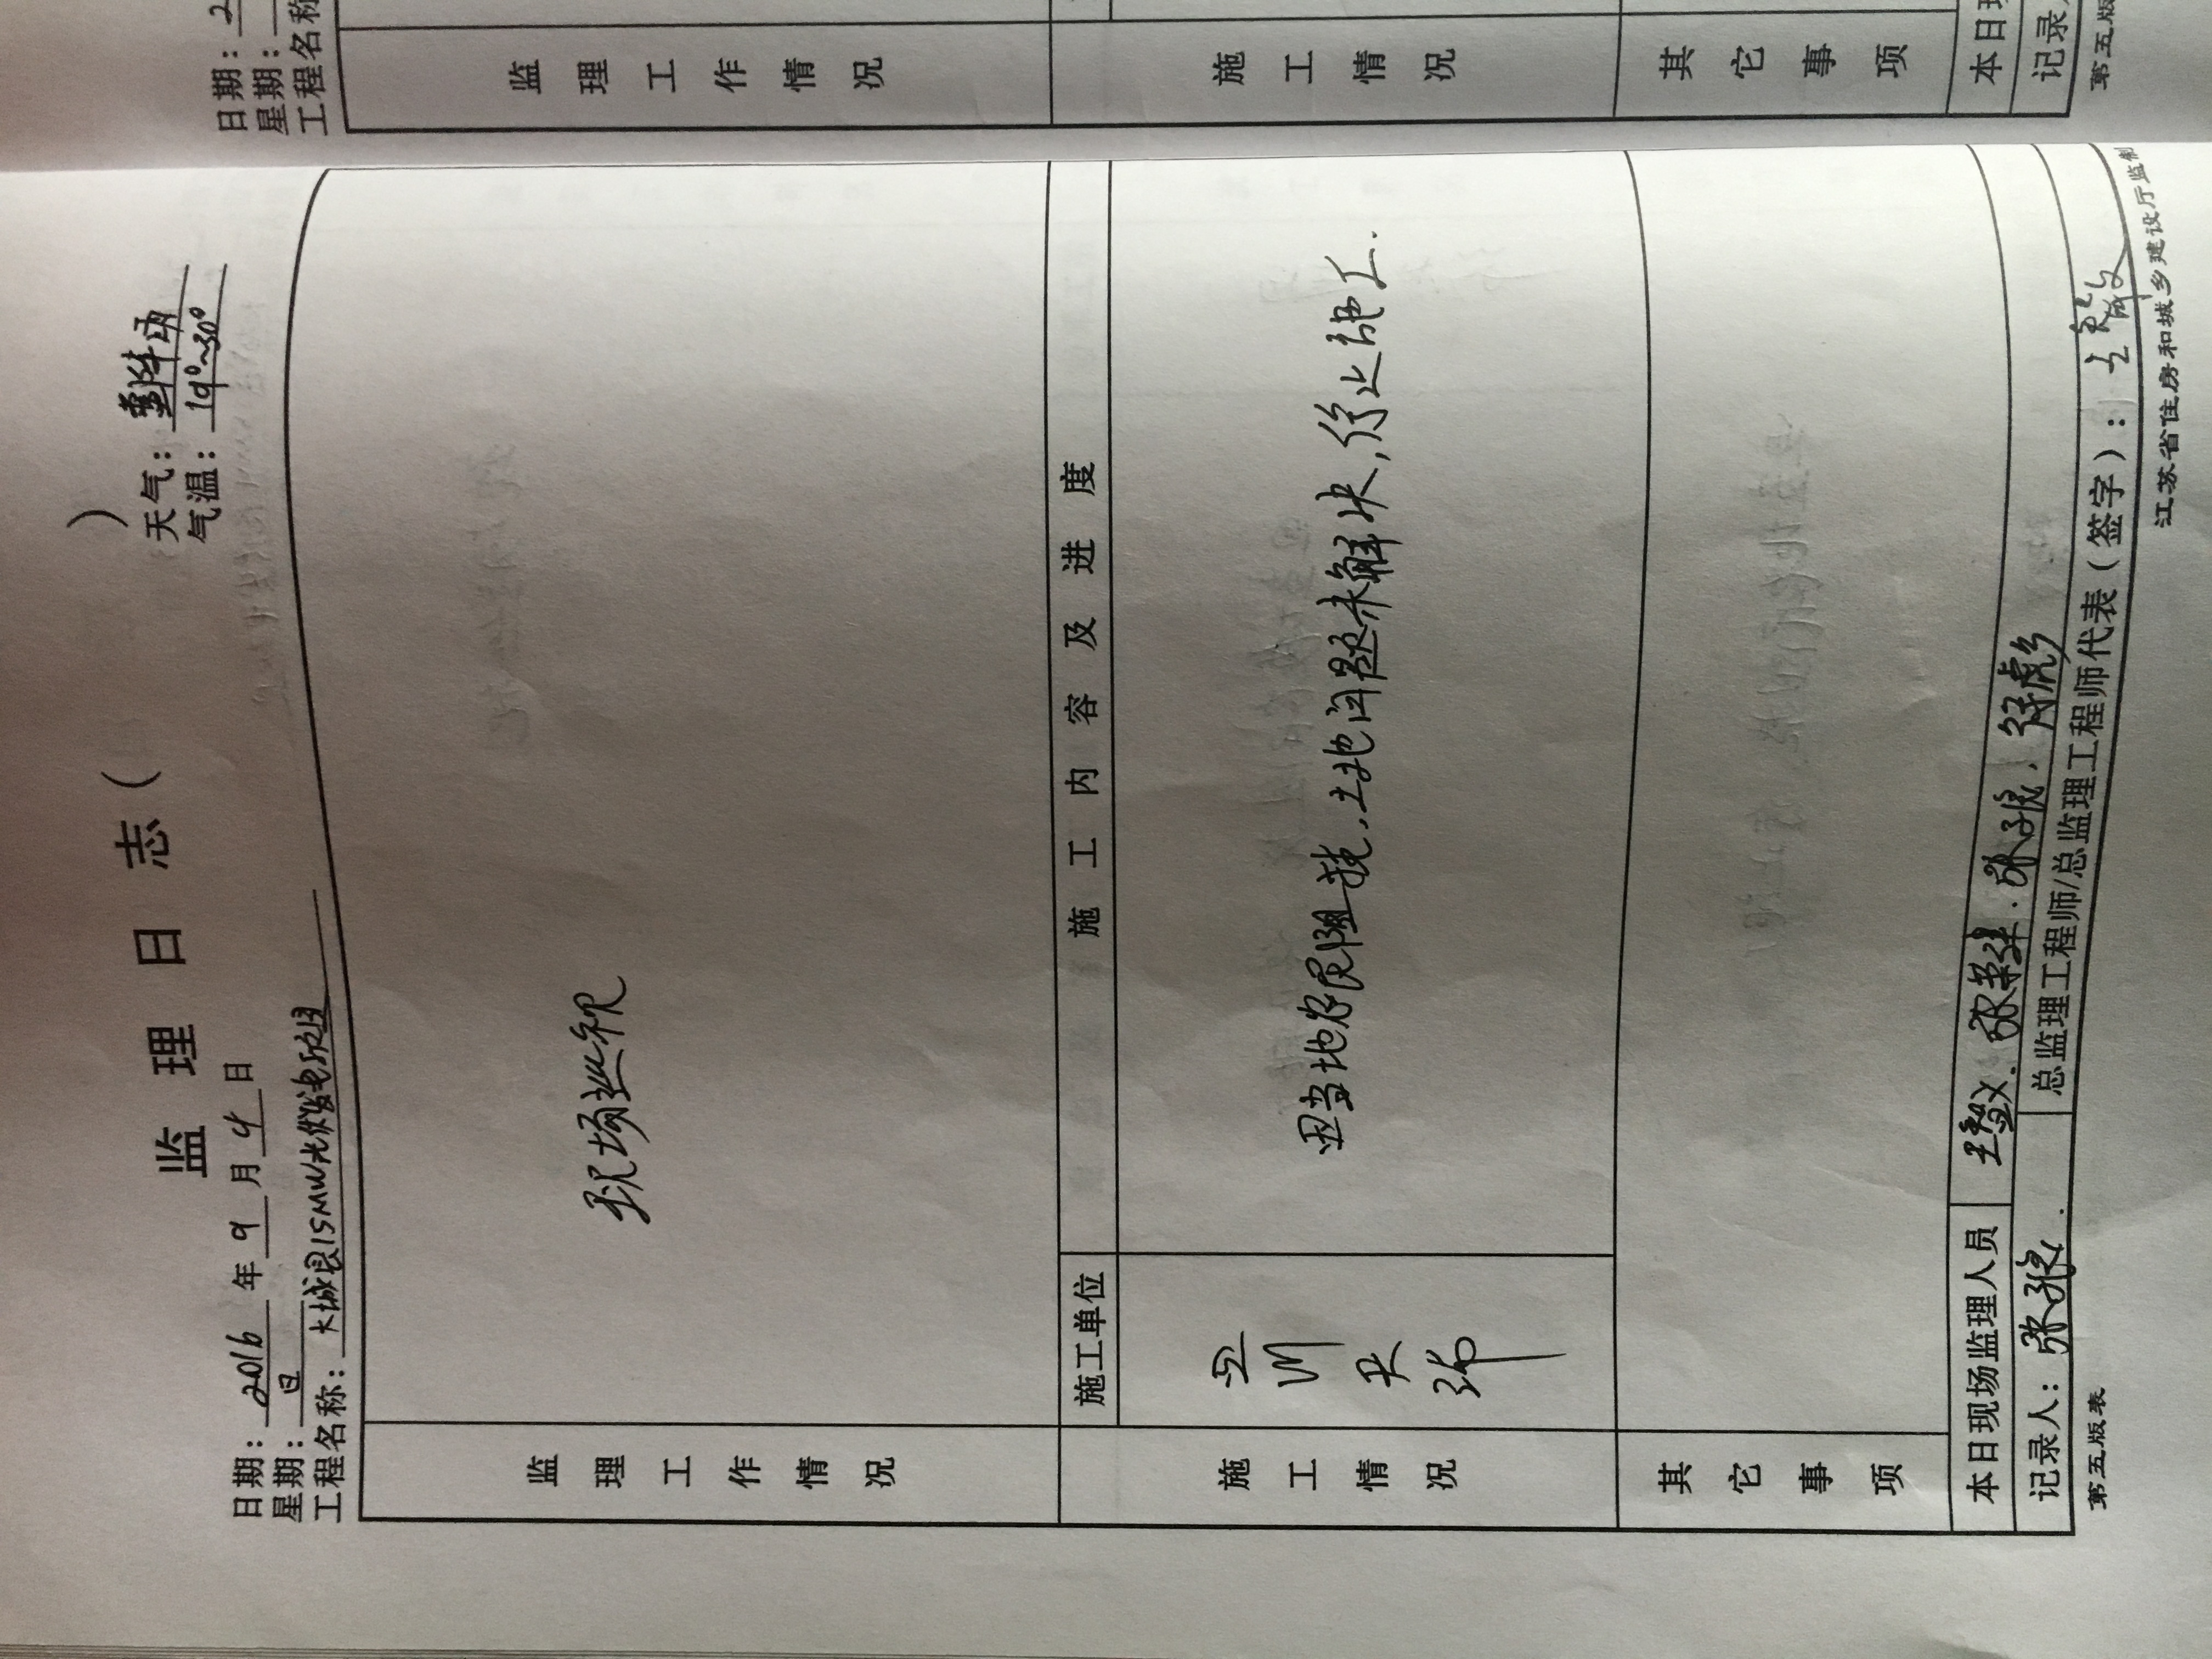 监理日志（ ）
日期：2016年9月4日 天气：
星期：日 气温：19°~30°
工程名称：大城县15MW光伏发电项目
监理工作情况
现场巡视
施工情况
施工单位
施工内容及进度
因当地农民阻挠，土地问题未解决，停止施工.
其它事项
本日现场监理人员
记录人： 总监理工程师/总监理工程师代表（签字）：
第五版表 江苏省住房和城乡建设厅监制
日期：2
星期：
工程名称
监理工作情况
施工情况
其它事项
本日现
记录
第五版